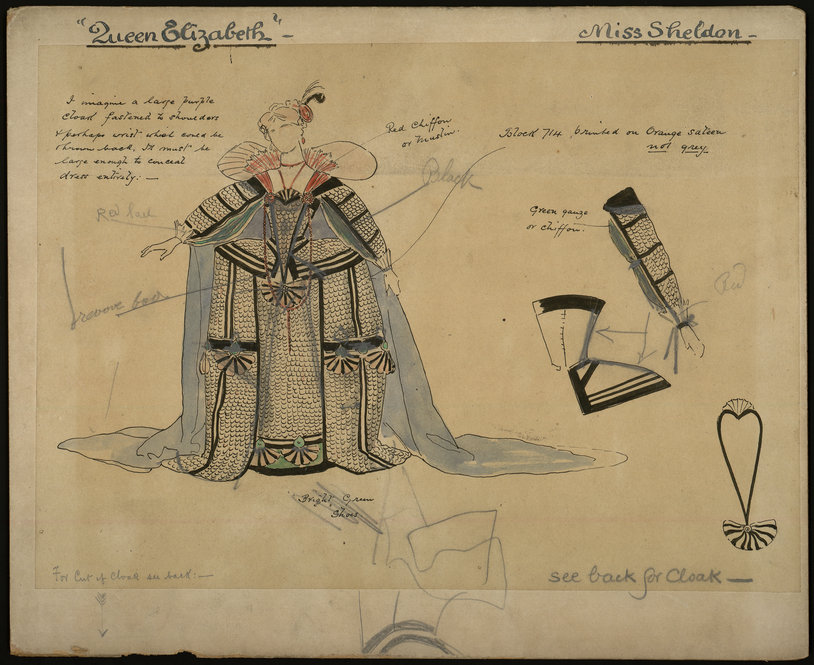 "Queen Elizabeth" –
Miss Sheldon –
I imagine a large purple
cloak fastened to shoulders
& perhaps wrist which could be
thrown back. It must be
large enough to conceal
dress entirely: –
Red Chiffon
or Muslin.
Block 714 printed on Orange sateen
not grey.
Black
Green gauze
or chiffon.
Red
Red
remove bow
Bright Green
Shoes
For Cut of Cloak see back: –
see back for Cloak –